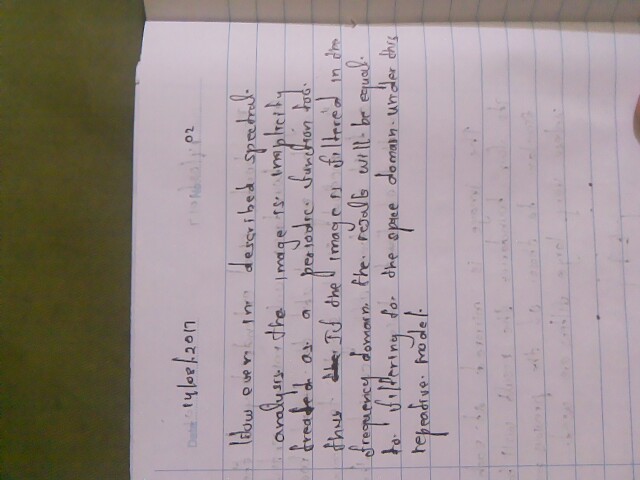 Date: 14/08/2017 02
How ever in described spectral.
analysis. the image is. implicity
treated as a periodic function too.
thus If the image is filtered in the
frequency domain the result will be equal.
to' filtering for the space domain. under this
repeadive. model.